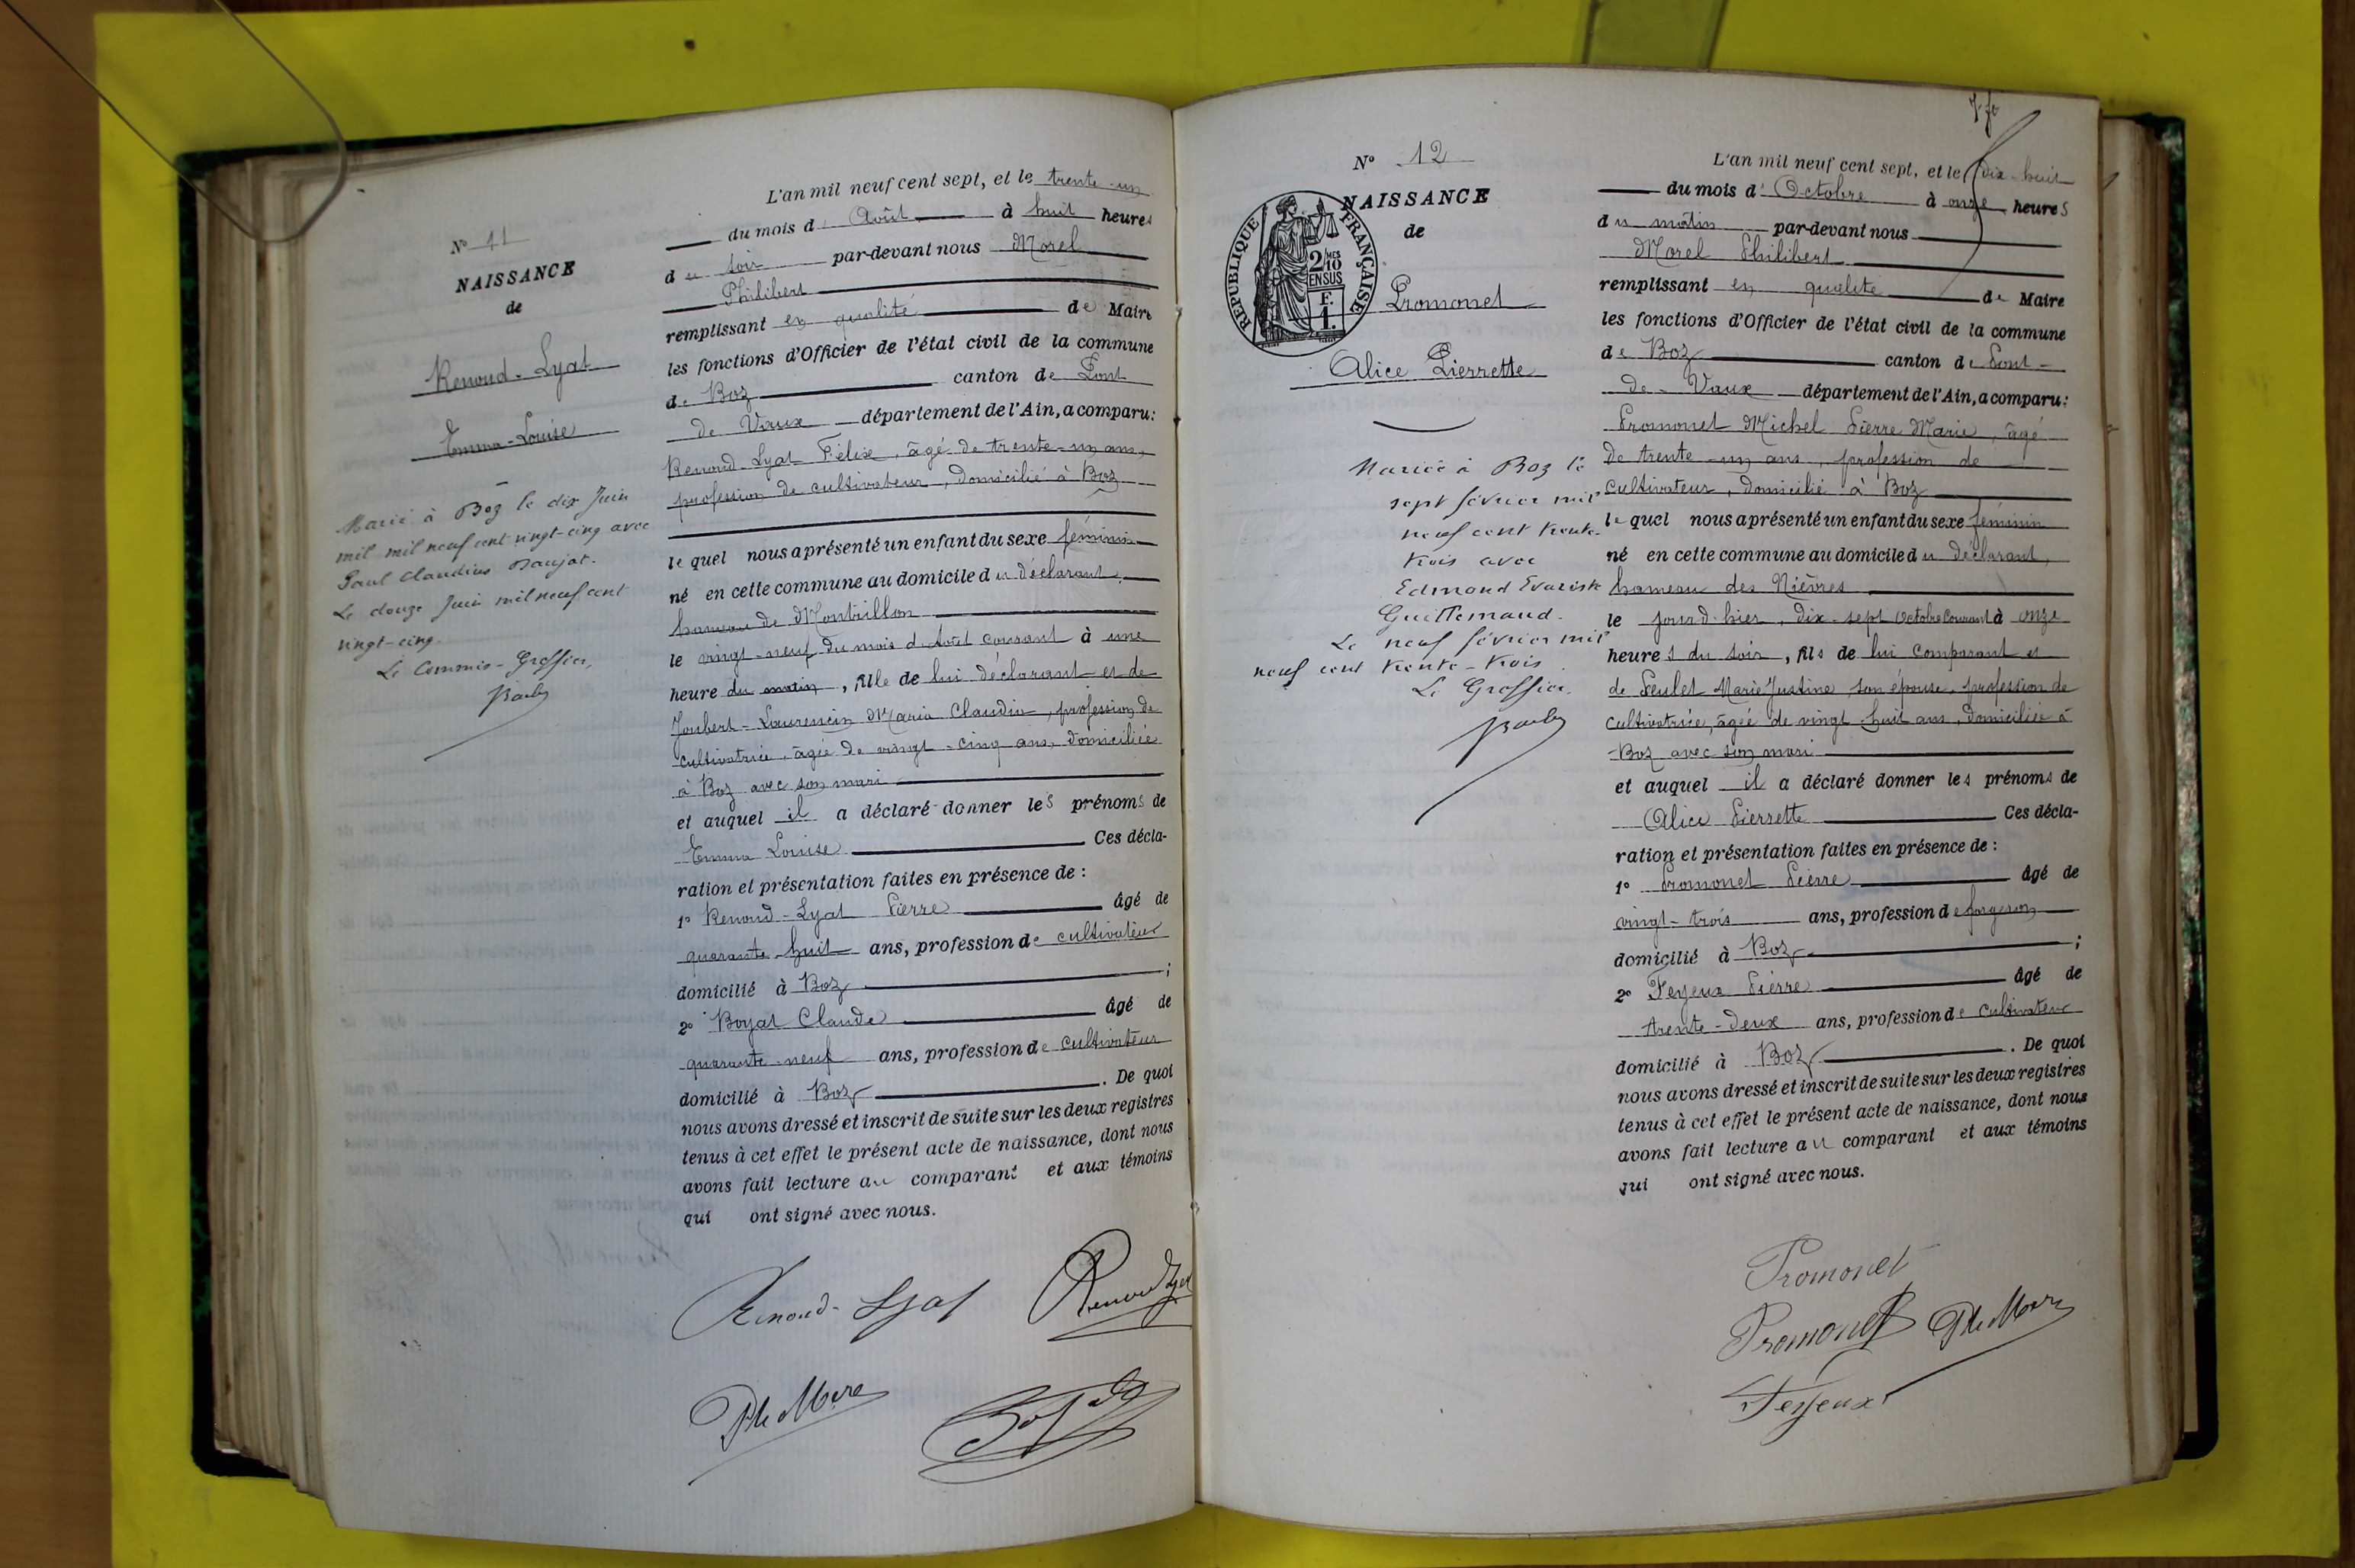 N° 11
NAISSANCE
de
Renoud-Lyat
Emma-Louise
Marié à Boz le dix Juin
mil mil neuf cent vingt-cinq avec
Paul Claudius Naujat.
Le douze Juin mil neuf cent
vingt-cinq.
Le Commis-Greffier,
L'an mil neuf cent sept, et le trente-un
du mois d'Août à huit heures
du soir par-devant nous Morel
Philibert
remplissant en qualité de Maire
les fonctions d'Officier de l'état civil de la commune
de Boz canton de Pont
de Vaux département de l'Ain, a comparu:
Renoud-Lyat Félix, âgé de trente-un ans,
profession de cultivateur, domicilié à Boz
le quel nous a présenté un enfant du sexe féminin
né en cette commune au domicile du déclarant,
hameau de Montrillon
le vingt-neuf du mois d'août courant à une
heure du matin, fille de lui déclarant et de
Joubert-Laurencin Maria Claudia, profession de
cultivatrice, âgée de vingt-cinq ans, domiciliée
à Boz avec son mari
et auquel il a déclaré donner les prénoms de
Emma Louise Ces décla-
ration et présentation faites en présence de :
1° Renoud-Lyat Pierre âgé de
quarante-huit ans, profession de cultivateur
domicilié à Boz ;
2° Boyat Claude âgé de
quarante-neuf ans, profession de cultivateur
domicilié à Boz . De quoi
nous avons dressé et inscrit de suite sur les deux registres
tenus à cet effet le présent acte de naissance, dont nous
avons fait lecture au comparant et aux témoins
qui ont signé avec nous.
Renoud-Lyat Renoud Lyat
Ph Morel Boyat
N° 12
NAISSANCE
de
RÉPUBLIQUE FRANÇAISE
2/10 MES
EN SUS
F.
1.
Promonet
Alice Pierrette
Mariée à Boz le
sept février mil
neuf cent trente-
trois avec
Edmond Evariste
Guillemaud.
Le neuf février mil
neuf cent trente-trois.
Le Greffier,
L'an mil neuf cent sept, et le dix-huit
du mois d'Octobre à onze heures
du matin par-devant nous
Morel Philibert
remplissant en qualité de Maire
les fonctions d'Officier de l'état civil de la commune
de Boz canton de Pont-
de-Vaux département de l'Ain, a comparu:
Promonet Michel Pierre Marie, âgé
de trente-un ans, profession de
cultivateur, domicilié à Boz
le quel nous a présenté un enfant du sexe féminin
né en cette commune au domicile du déclarant,
hameau des Nièvres
le jourd'hier, dix-sept octobre courant à onze
heures du soir, fils de lui comparant et
de Peulet Marie Justine, son épouse, profession de
cultivatrice, âgée de vingt-huit ans, domiciliée à
Boz avec son mari
et auquel il a déclaré donner les prénoms de
Alice Pierrette Ces décla-
ration et présentation faites en présence de :
1° Promonet Pierre âgé de
vingt-trois ans, profession de forgeron
domicilié à Boz ;
2° Feyeux Pierre âgé de
trente-deux ans, profession de cultivateur
domicilié à Boz . De quoi
nous avons dressé et inscrit de suite sur les deux registres
tenus à cet effet le présent acte de naissance, dont nous
avons fait lecture au comparant et aux témoins
qui ont signé avec nous.
Promonet
Promonet Ph Morel
Feyeux